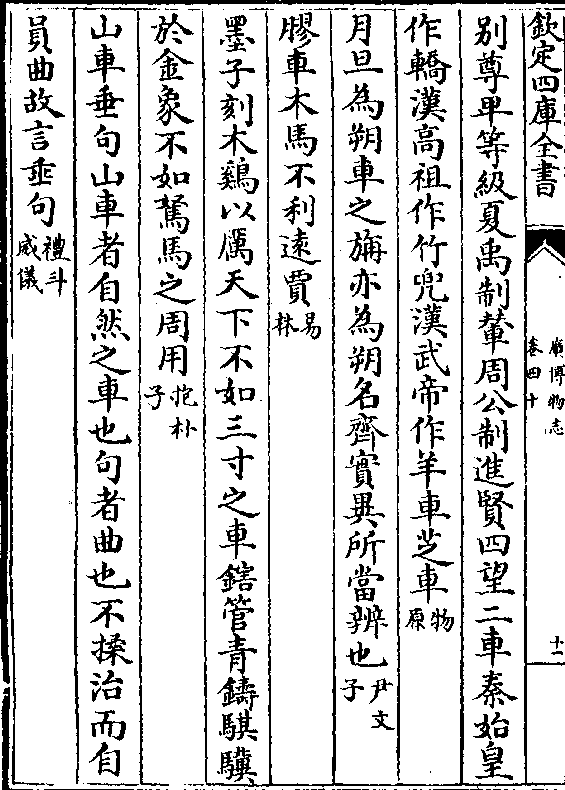 欽定四庫全書
廣博物志
卷四十
十一
别尊卑等級夏禹制輦周公制進賢四望二車秦始皇
作轎漢高祖作竹兜漢武帝作羊車芝車物原
月旦為朔車之旃亦為朔名齊實異所當辨也尹文子
膠車木馬不利遠賈易林
墨子刻木鷄以厲天下不如三寸之車鎋管青鑄騏驥
於金象不如駑馬之周用抱朴子
山車垂句山車者自然之車也句者曲也不揉治而自
員曲故言垂句禮斗威儀